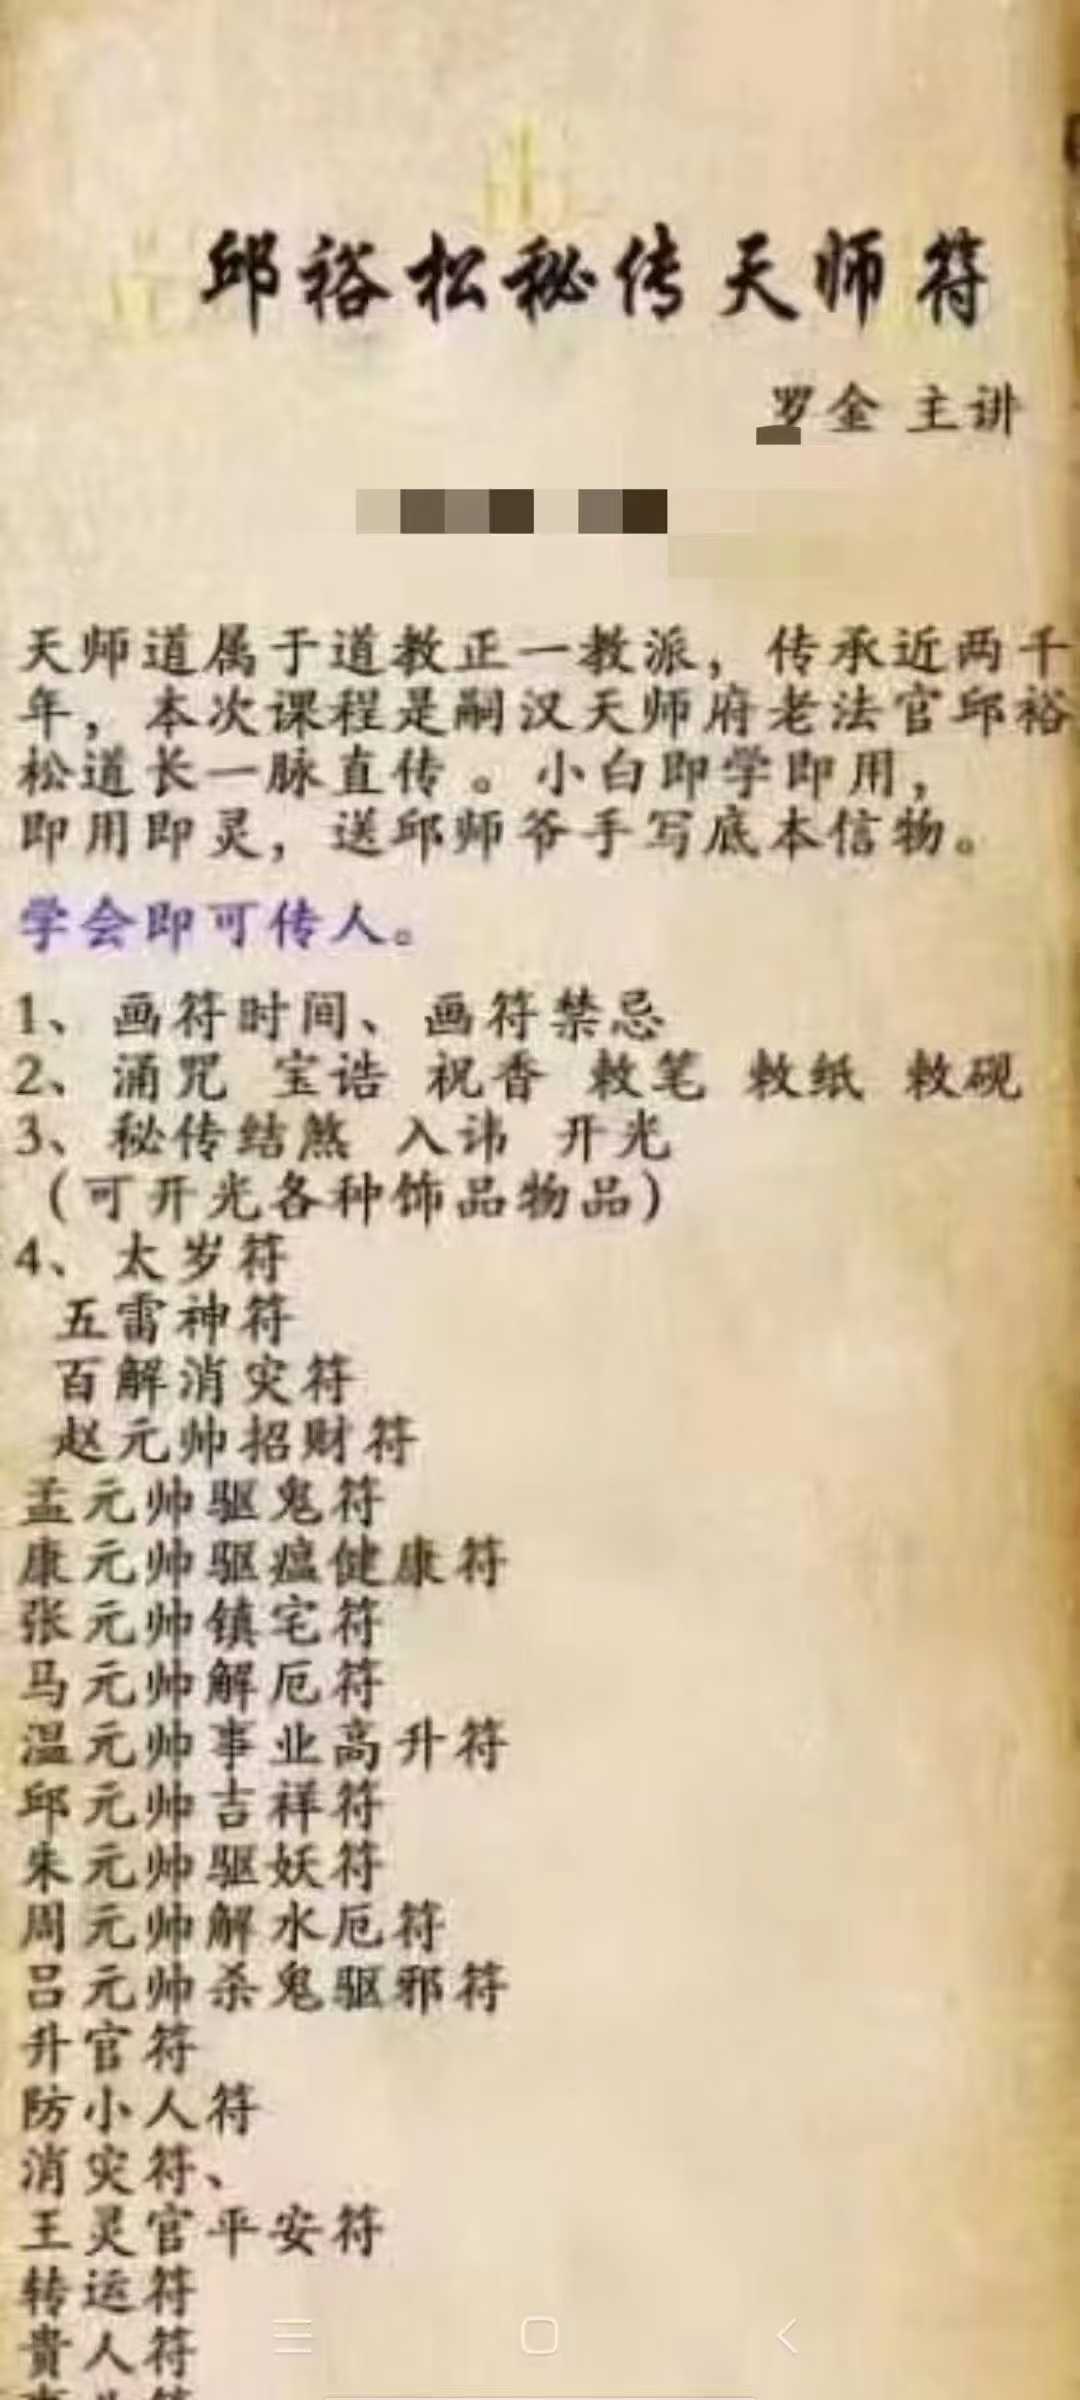 邱裕松秘传天师符
罗金 主讲
天师道属于道教正一教派，传承近两千
年，本次课程是嗣汉天师府老法官邱裕
松道长一脉直传。小白即学即用，
即用即灵，送邱师爷手写底本信物。
学会即可传人。
1、画符时间、画符禁忌
2、涌咒 宝诰 祝香 敕笔 敕纸 敕砚
3、秘传结煞 入讳 开光
（可开光各种饰品物品）
4、太岁符
五雷神符
百解消灾符
赵元帅招财符
孟元帅驱鬼符
康元帅驱瘟健康符
张元帅镇宅符
马元帅解厄符
温元帅事业高升符
邱元帅吉祥符
朱元帅驱妖符
周元帅解水厄符
吕元帅杀鬼驱邪符
升官符
防小人符
消灾符、
王灵官平安符
转运符
貴人符